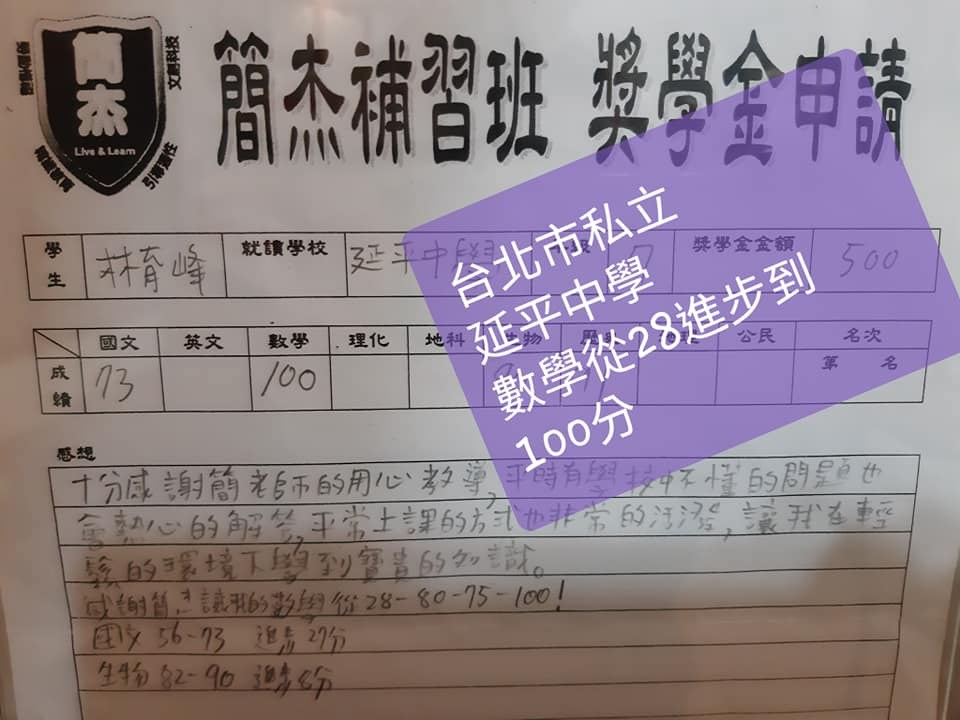 簡杰
Live & Learn
簡杰補習班 獎學金申請
學生 林育峰 就讀學校 延平中學 7 獎學金金額 500
台北市私立
延平中學
數學從28進步到
100分
國文 英文 數學 理化 地科 生物 歷史 公民 名次
成績 73 100 第 名
感想
十分感謝簡老師的用心教導,平時有學校中不懂的問題也
會熱心的解答,平常上課的方式也非常的活潑,讓我在輕
鬆的環境下學到寶貴的知識。
感謝簡杰讓我的數學從28-80-75-100!
國文 56-73 進步27分
生物 82-90 進步8分